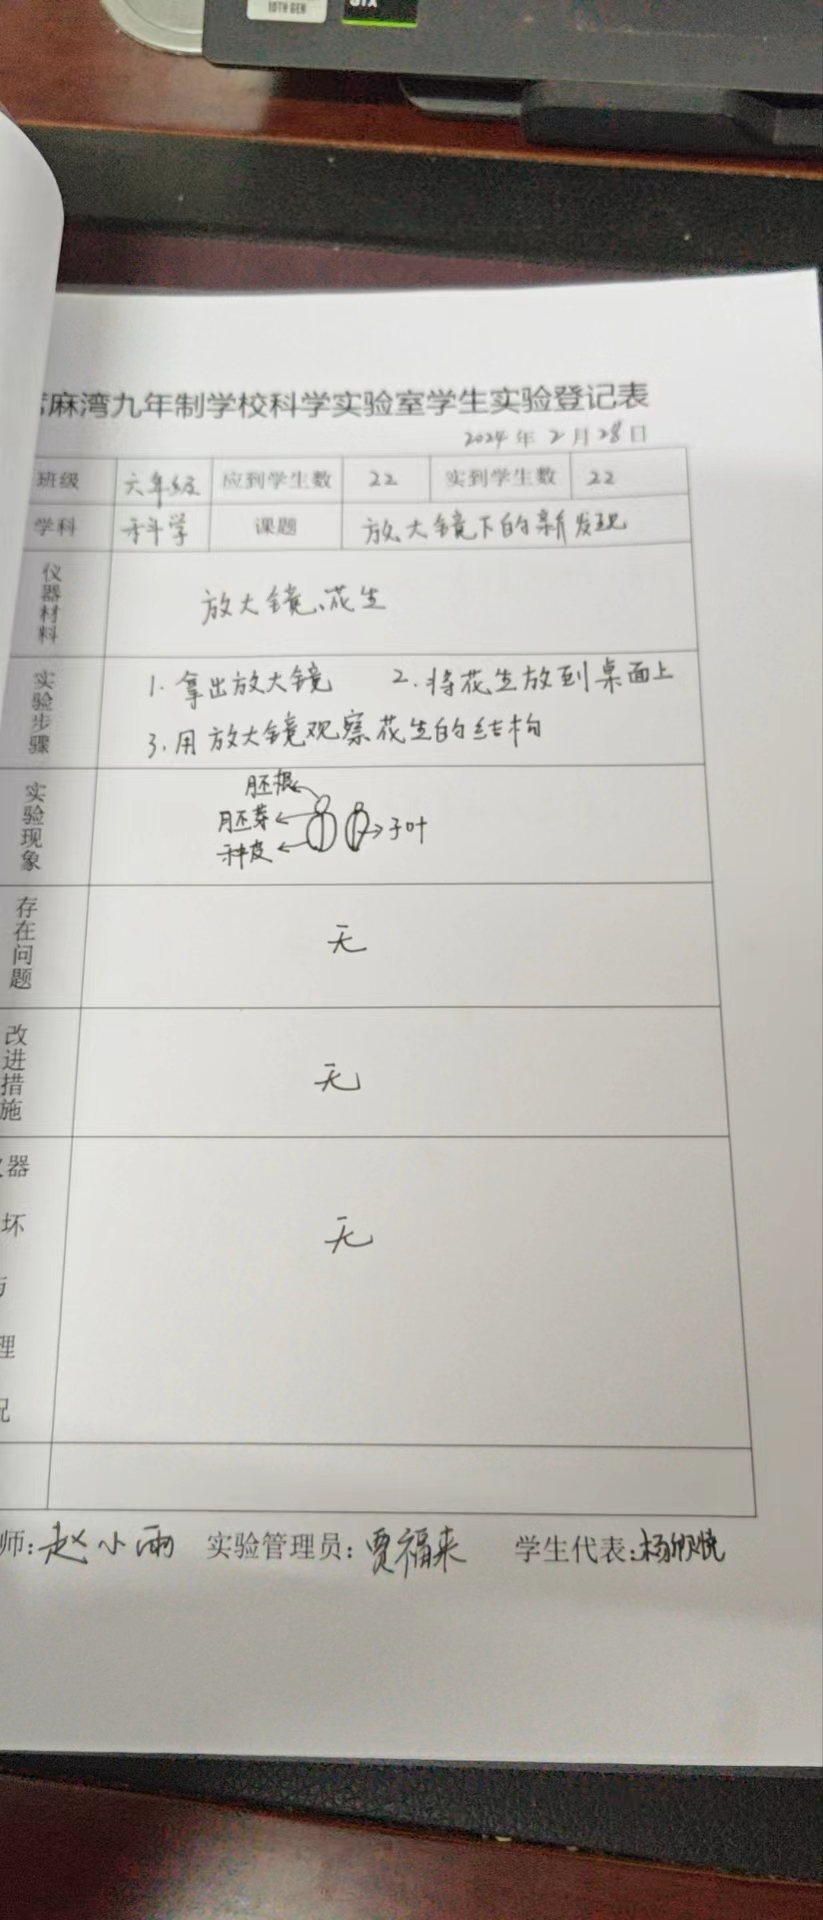 10TH GEN
麻湾九年制学校科学实验室学生实验登记表
2024年2月28日
班级 六年级 应到学生数 22 实到学生数 22
学科 科学 课题 放大镜下的新发现
仪器材料 放大镜、花生
实验步骤 1. 拿出放大镜 2. 将花生放到桌面上
3. 用放大镜观察花生的结构
实验现象 胚根
胚芽 子叶
种皮
存在问题 无
改进措施 无
器
坏 无
理
况
师: 赵小雨 实验管理员: 贾福来 学生代表: 杨欣悦